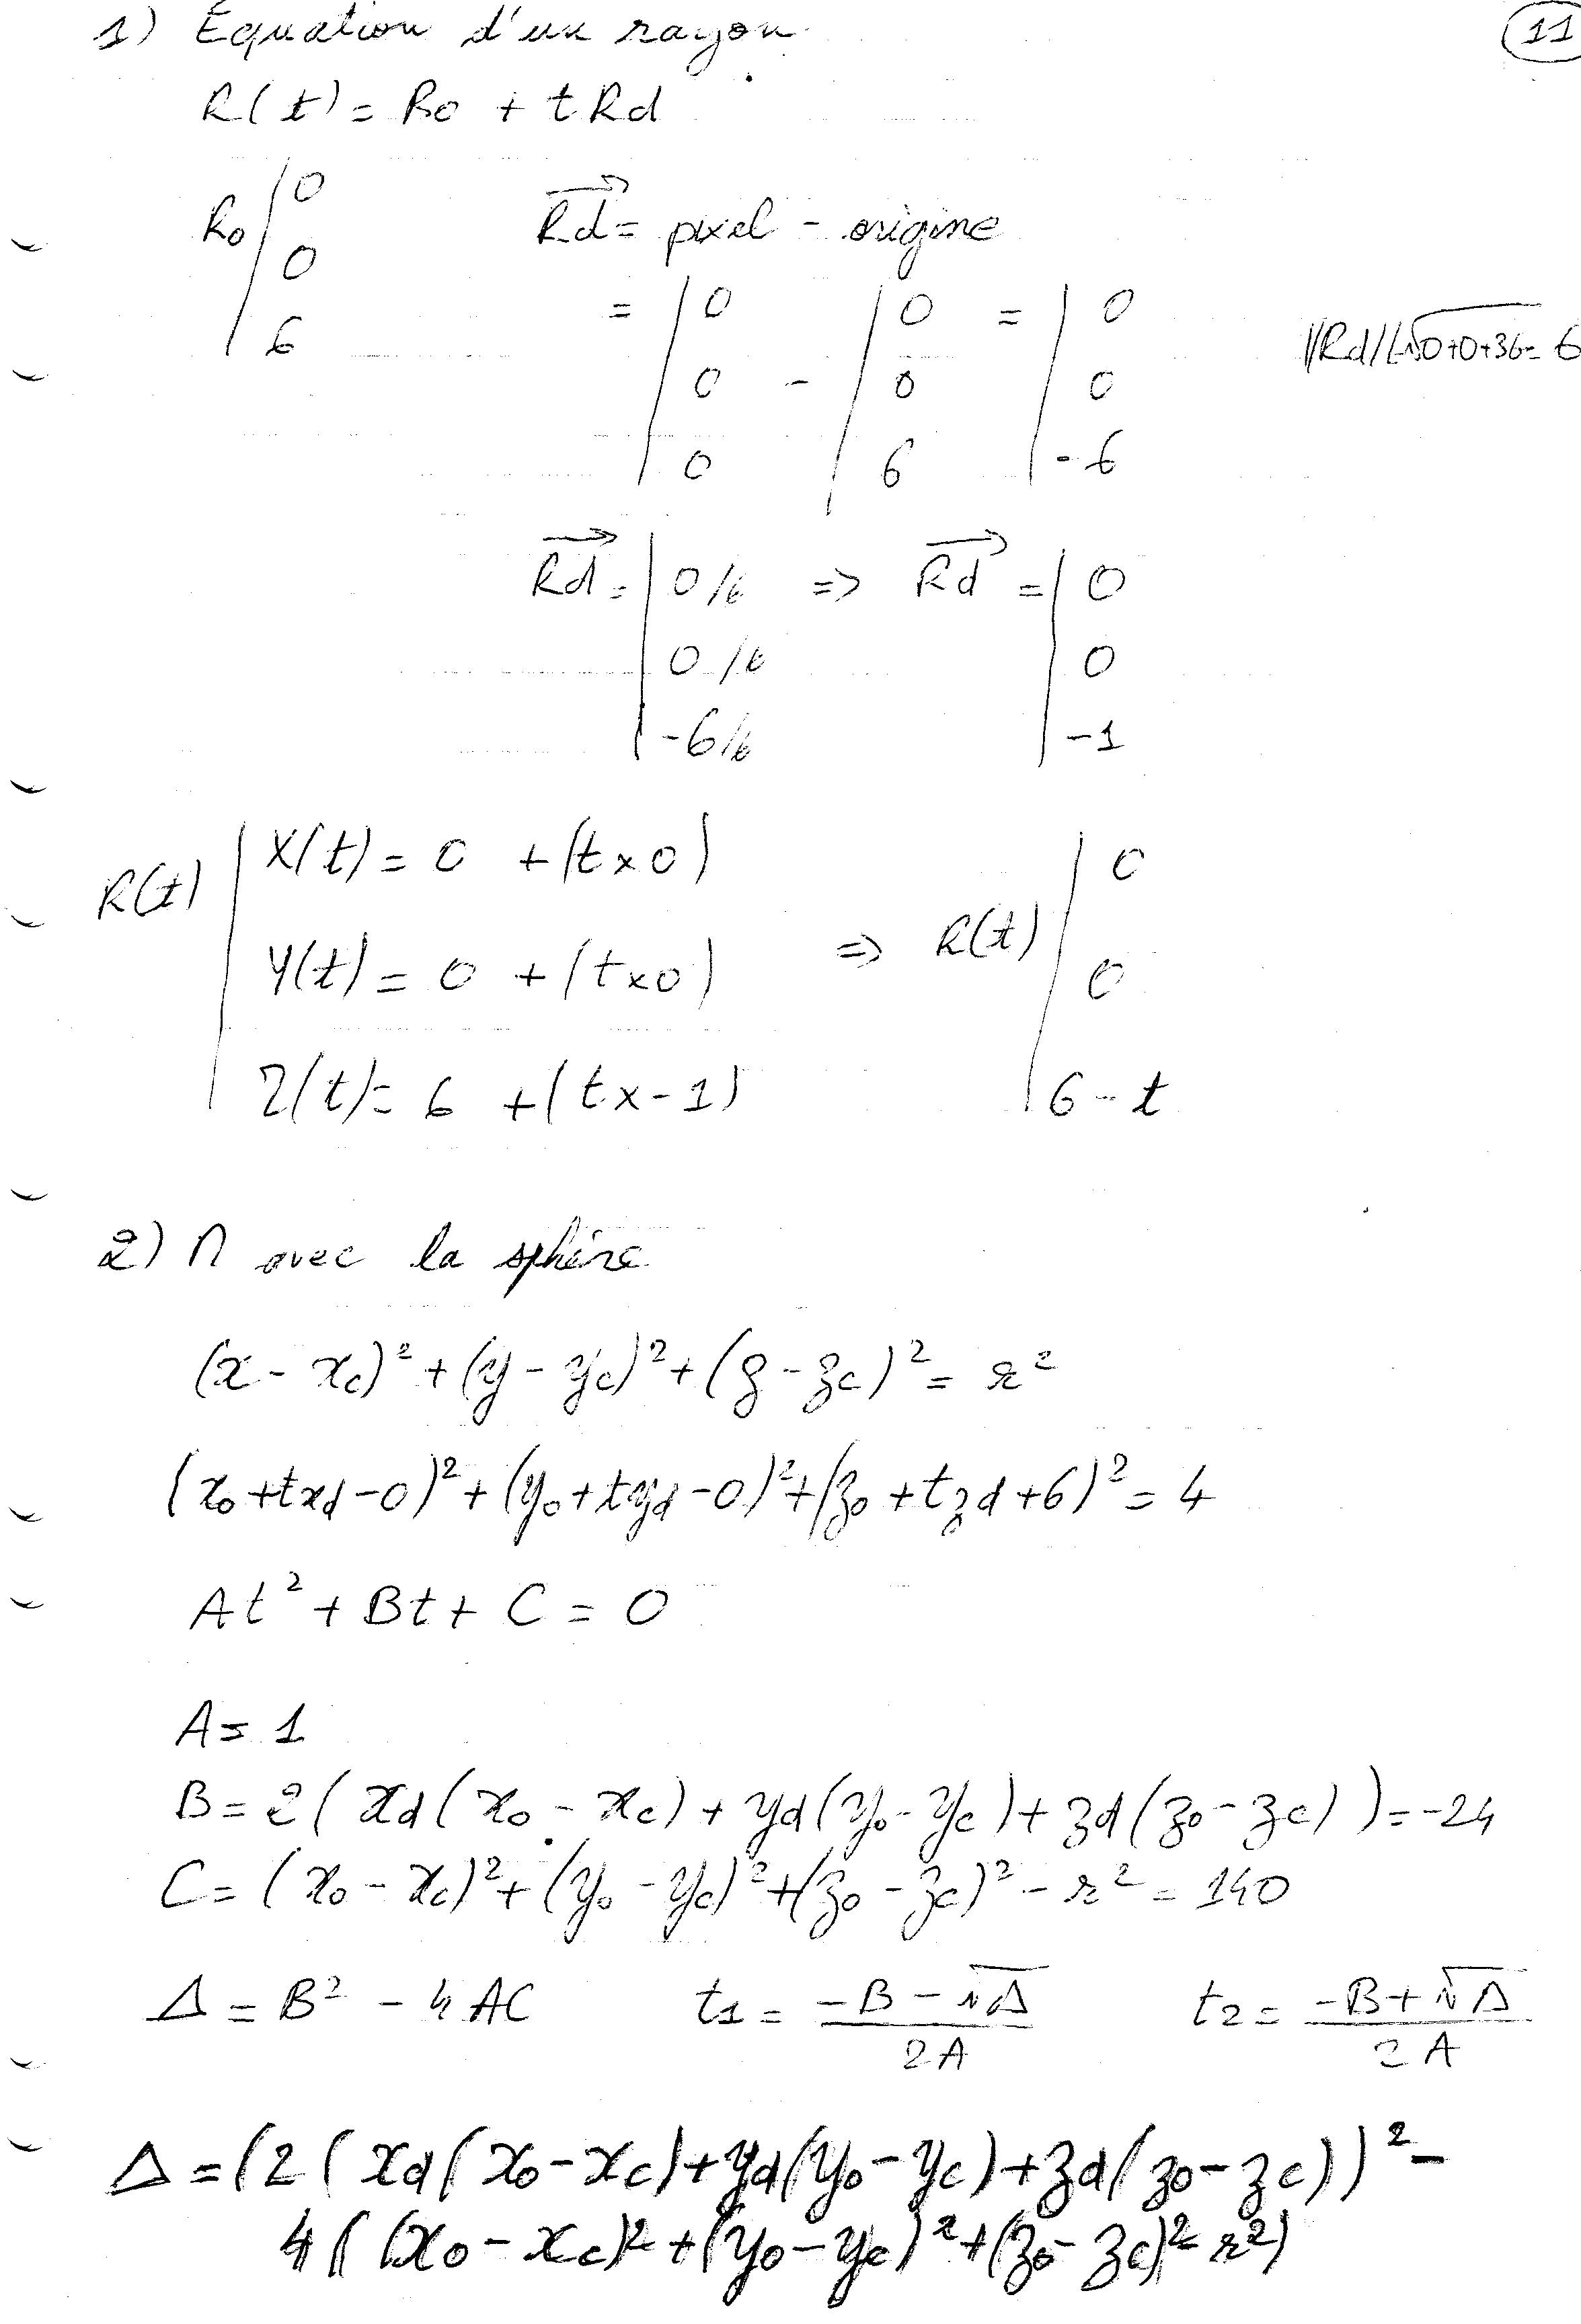 11
1) Equation d'un rayon
R(t) = Ro + t Rd
Ro | 0 0 6
Rd = pixel - origine
= | 0 0 0 - | 0 0 6 = | 0 0 -6
||Rd|| = √0+0+36 = 6
Rd = | 0/6 0/6 -6/6 => Rd = | 0 0 -1
R(t) | X(t) = 0 + (t x 0)
Y(t) = 0 + (t x 0)
Z(t) = 6 + (t x -1)
=> R(t) | 0 0 6 - t
2) ∩ avec la sphère
(x - xc)² + (y - yc)² + (z - zc)² = r²
(xo + txd - 0)² + (yo + tyd - 0)² + (zo + tzd + 6)² = 4
At² + Bt + C = 0
A = 1
B = 2(xd(xo - xc) + yd(yo - yc) + zd(zo - zc)) = -24
C = (xo - xc)² + (yo - yc)² + (zo - zc)² - r² = 140
Δ = B² - 4AC t1 = -B - √Δ / 2A t2 = -B + √Δ / 2A
Δ = (2(xd(xo - xc) + yd(yo - yc) + zd(zo - zc))² -
4((xo - xc)² + (yo - yc)² + (zo - zc)² - r²)